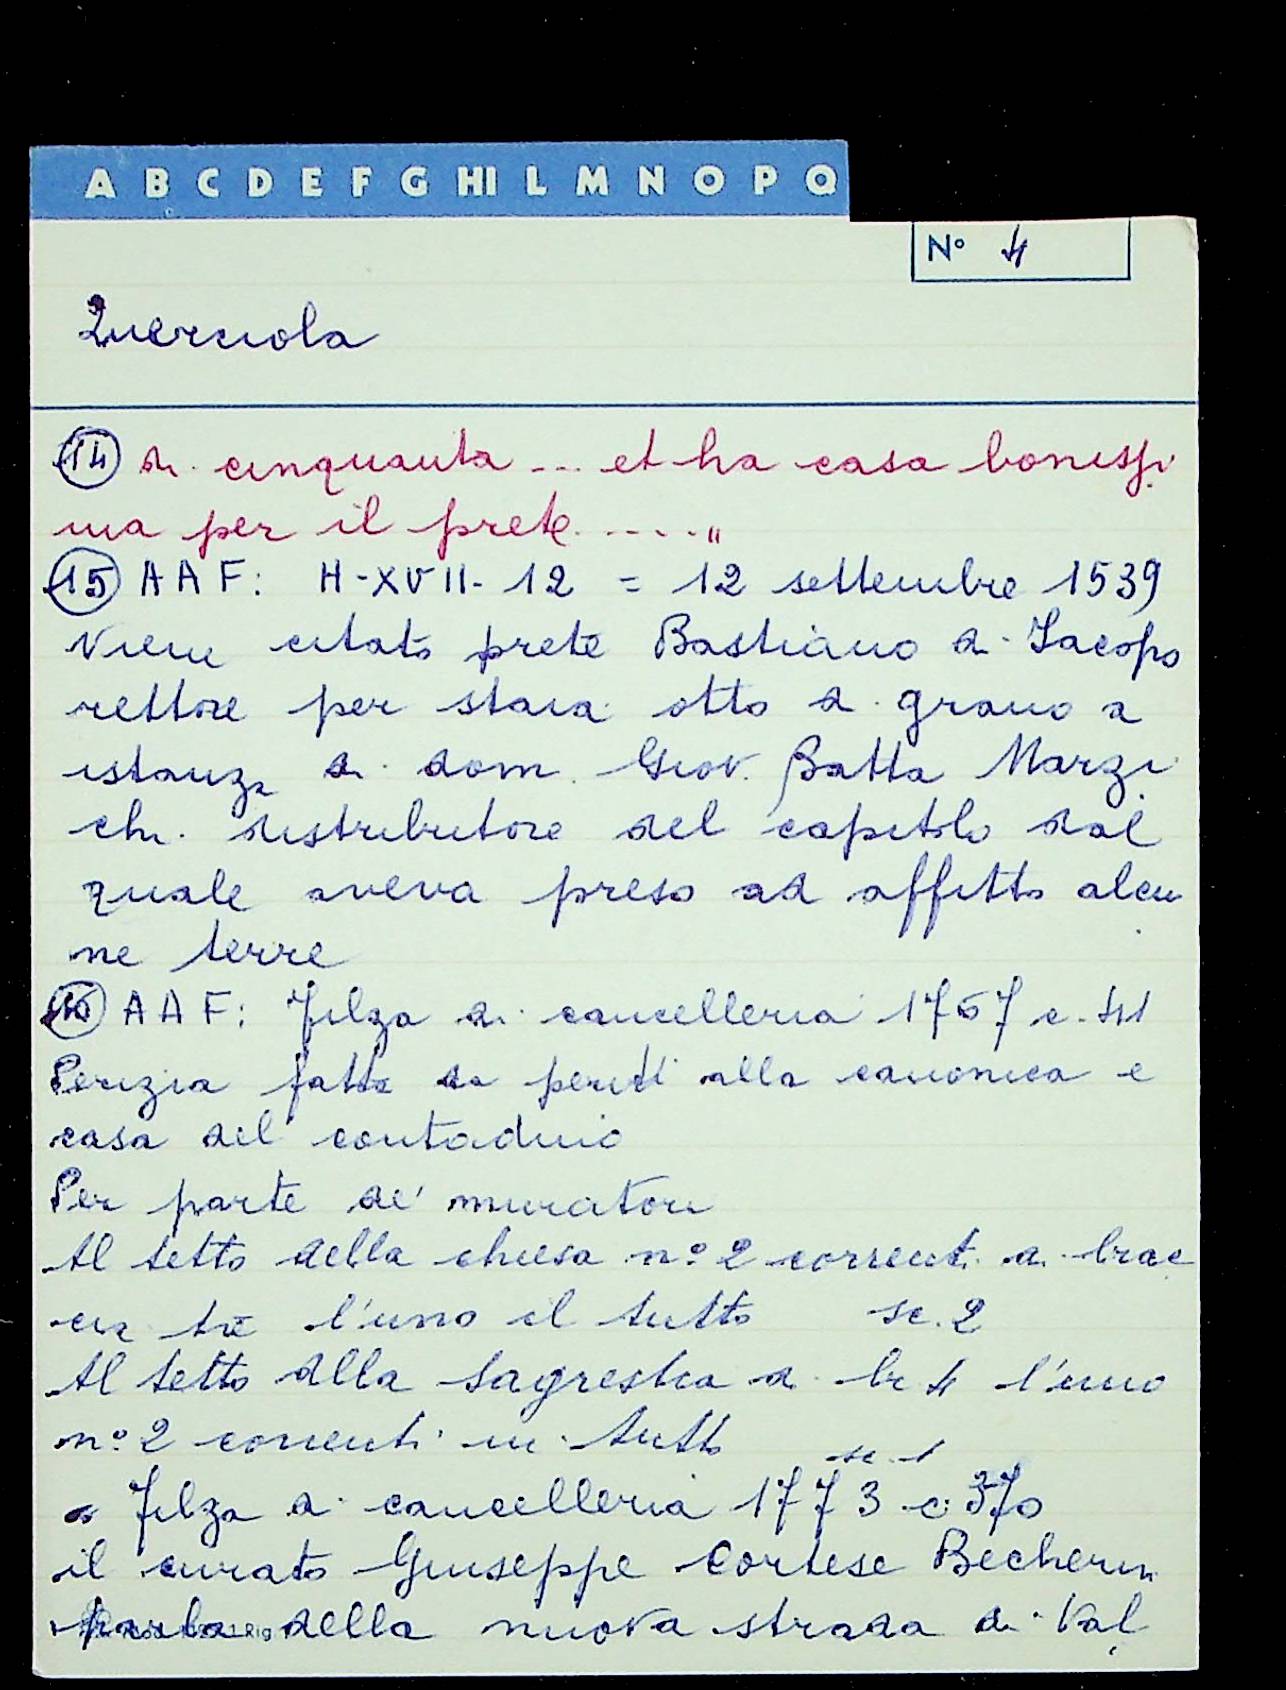 A B C D E F G HI L M N O P Q
N° 4
Querciola
14 di cinquanta ... et ha casa bonissi
ma per il prete ....."
15 AAF: H-XVII-12 = 12 settembre 1539
Viene citato prete Bastiano di Jacopo
rettore per staia otto di grano a
istanza di dom. Giov. Batta Marzi
chi distributore del capitolo dal
quale aveva preso ad affitto alcu
ne terre
16 AAF: Filza di cancelleria 1767 c. 441
Perizia fatta da periti alla canonica e
casa del contadino
Per parte de' muratori
Al tetto della chiesa n° 2 correnti di brac
cia tre l'uno il tutto sc. 2
Al tetto della sagrestia di br 4 l'uno
n° 2 correnti in tutto sc. 1
Filza di cancelleria 1773 c. 370
il curato Giuseppe Cortese Becherini
parla della nuova strada di Val